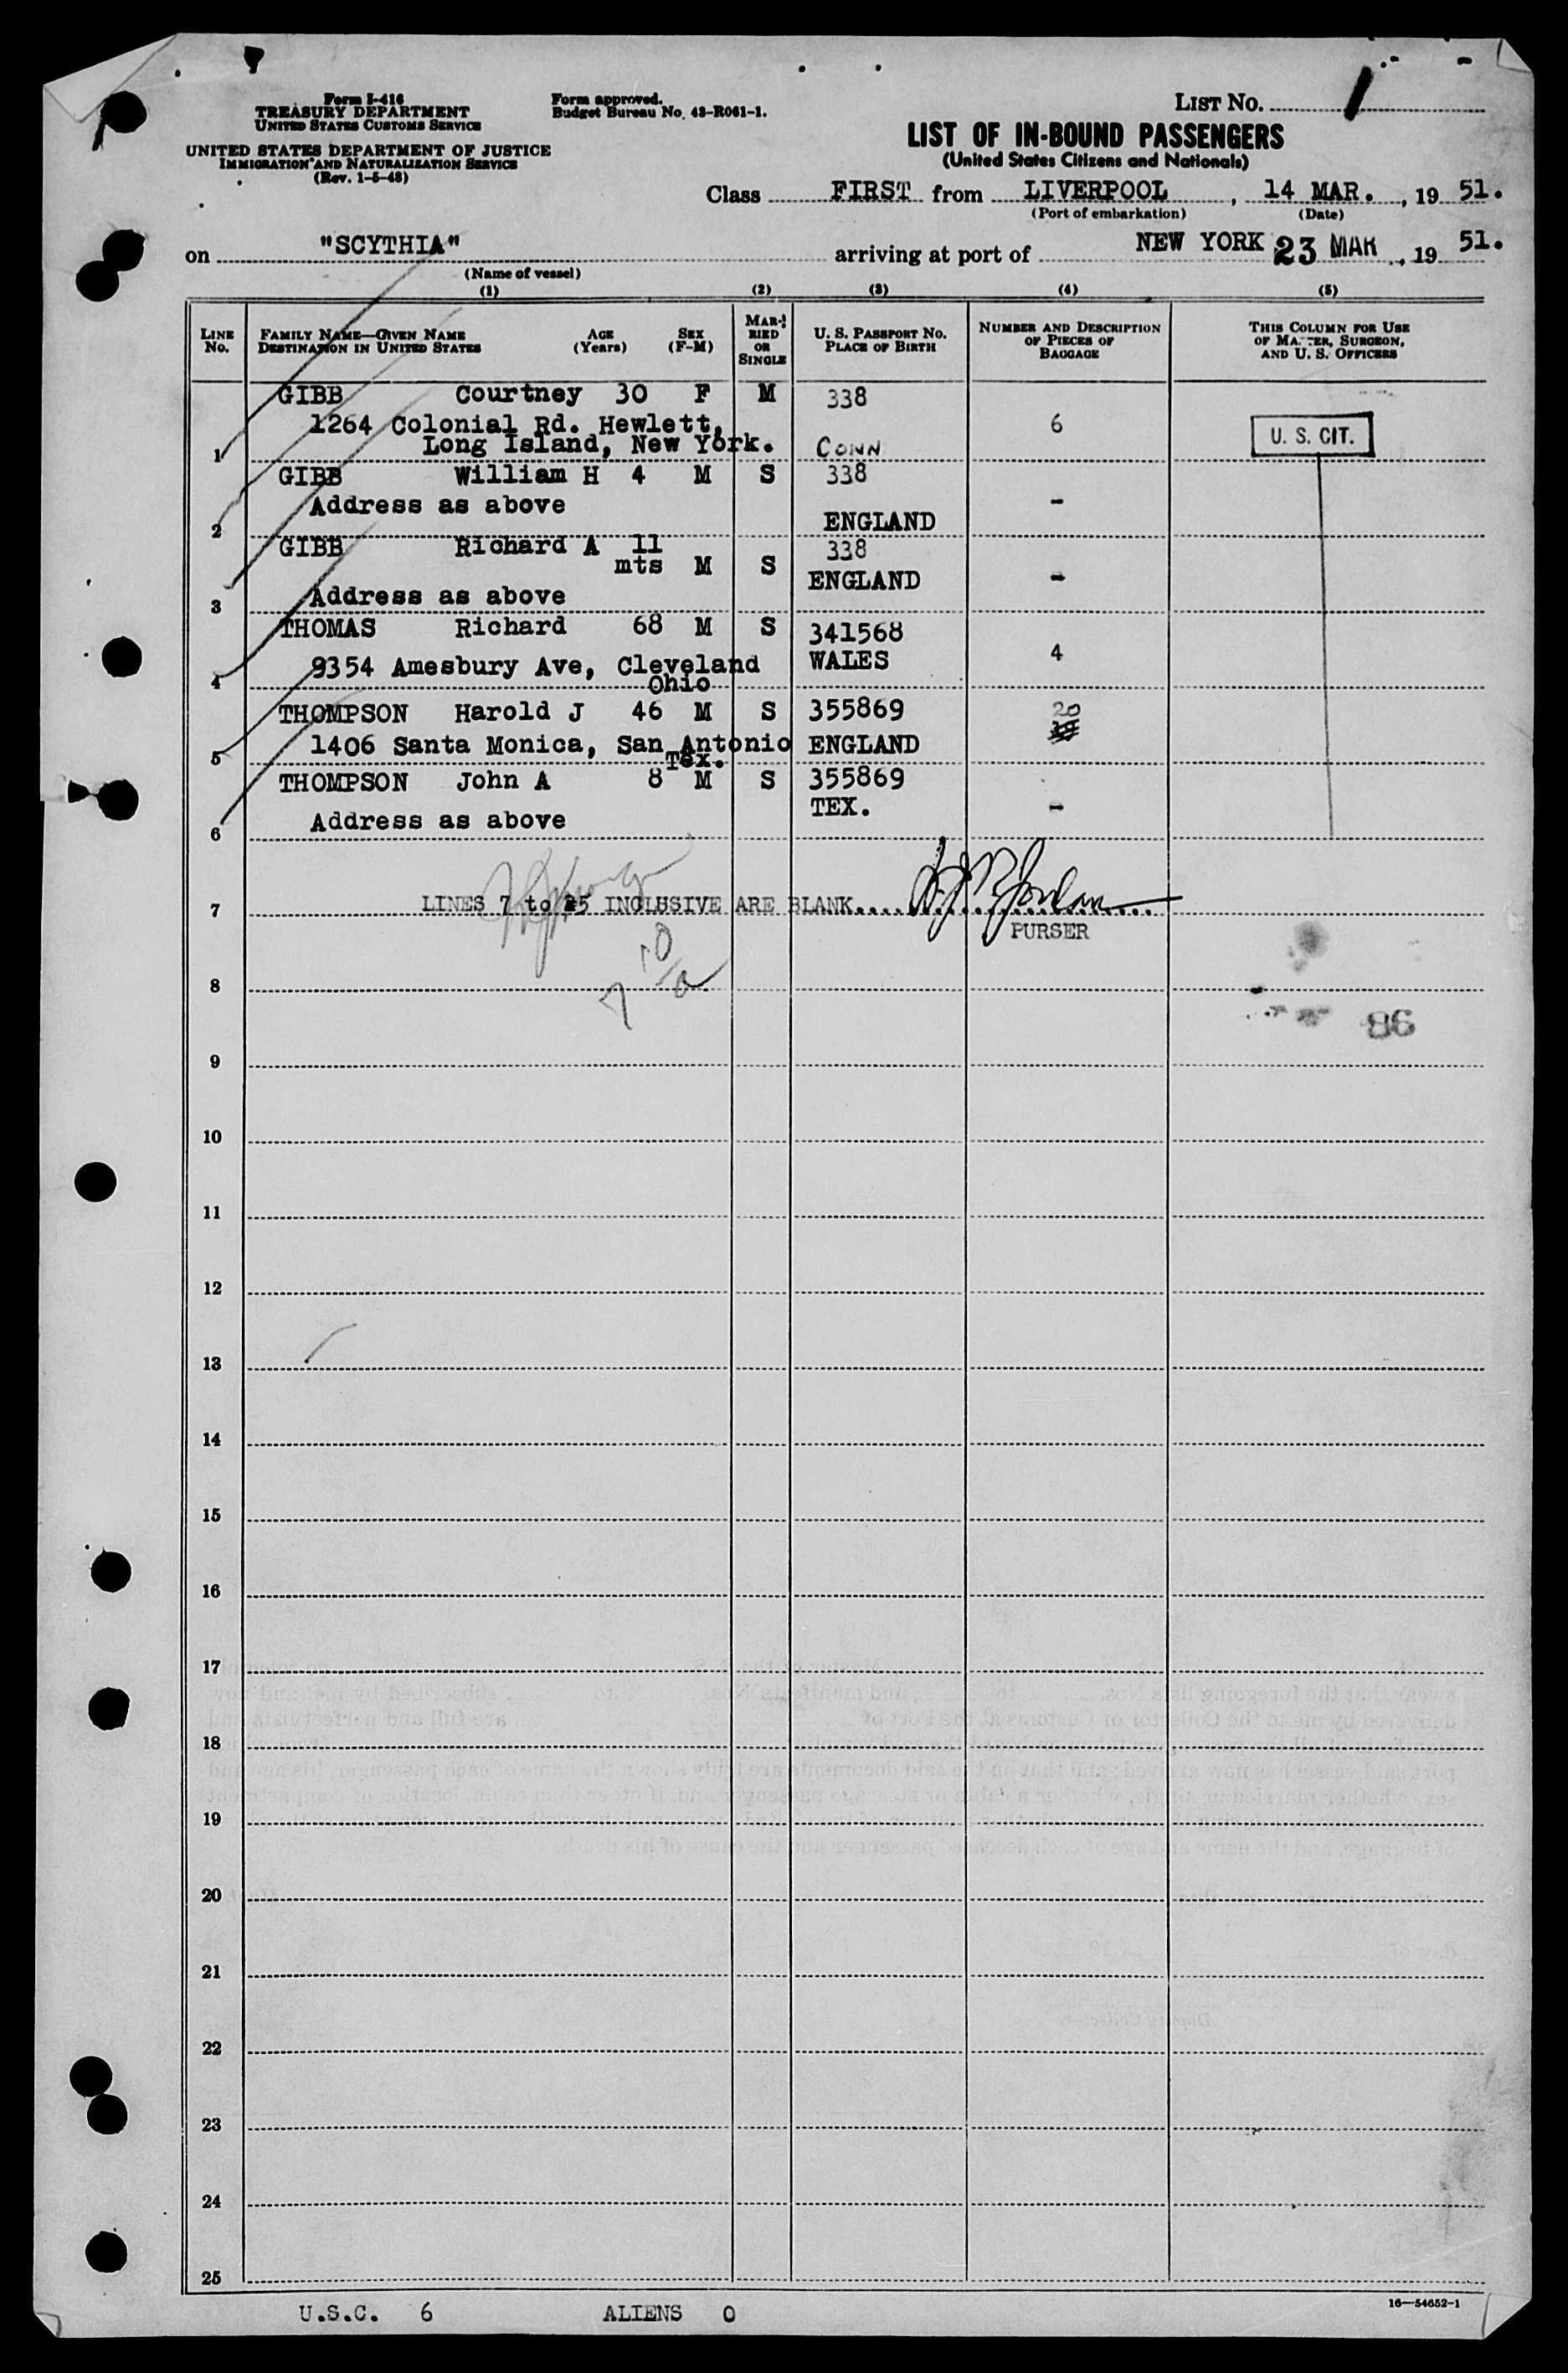 Form I-416
TREASURY DEPARTMENT
UNITED STATES CUSTOMS SERVICE
UNITED STATES DEPARTMENT OF JUSTICE
IMMIGRATION AND NATURALIZATION SERVICE
(Rev. 1-5-48)
Form approved.
Budget Bureau No. 43-R061-1.
LIST NO. 1
LIST OF IN-BOUND PASSENGERS
(United States Citizens and Nationals)
Class FIRST from LIVERPOOL, 14 MAR., 19 51.
(Port of embarkation) (Date)
on "SCYTHIA" arriving at port of NEW YORK 23 MAR, 19 51.
(Name of vessel)
(1) (2) (3) (4) (5)
LINE NO. FAMILY NAME—GIVEN NAME DESTINATION IN UNITED STATES AGE (Years) SEX (F-M) MARRIED OR SINGLE U. S. PASSPORT NO. PLACE OF BIRTH NUMBER AND DESCRIPTION OF PIECES OF BAGGAGE THIS COLUMN FOR USE OF MASTER, SURGEON, AND U. S. OFFICERS
GIBB Courtney 30 F M 338
1264 Colonial Rd. Hewlett, 6 U. S. CIT.
1 Long Island, New York. CONN
GIBB William H 4 M S 338
Address as above -
2 ENGLAND
GIBB Richard A 11 338
mts M S ENGLAND -
3 Address as above
THOMAS Richard 68 M S 341568
9354 Amesbury Ave, Cleveland WALES 4
4 Ohio
THOMPSON Harold J 46 M S 355869 20
1406 Santa Monica, San Antonio ENGLAND
5 Tex.
THOMPSON John A 8 M S 355869
TEX. -
6 Address as above
7 LINES 7 to 25 INCLUSIVE ARE BLANK....
PURSER
8
86
9
10
11
12
13
14
15
16
17
18
19
20
21
22
23
24
25
U.S.C. 6 ALIENS 0
16—54652-1